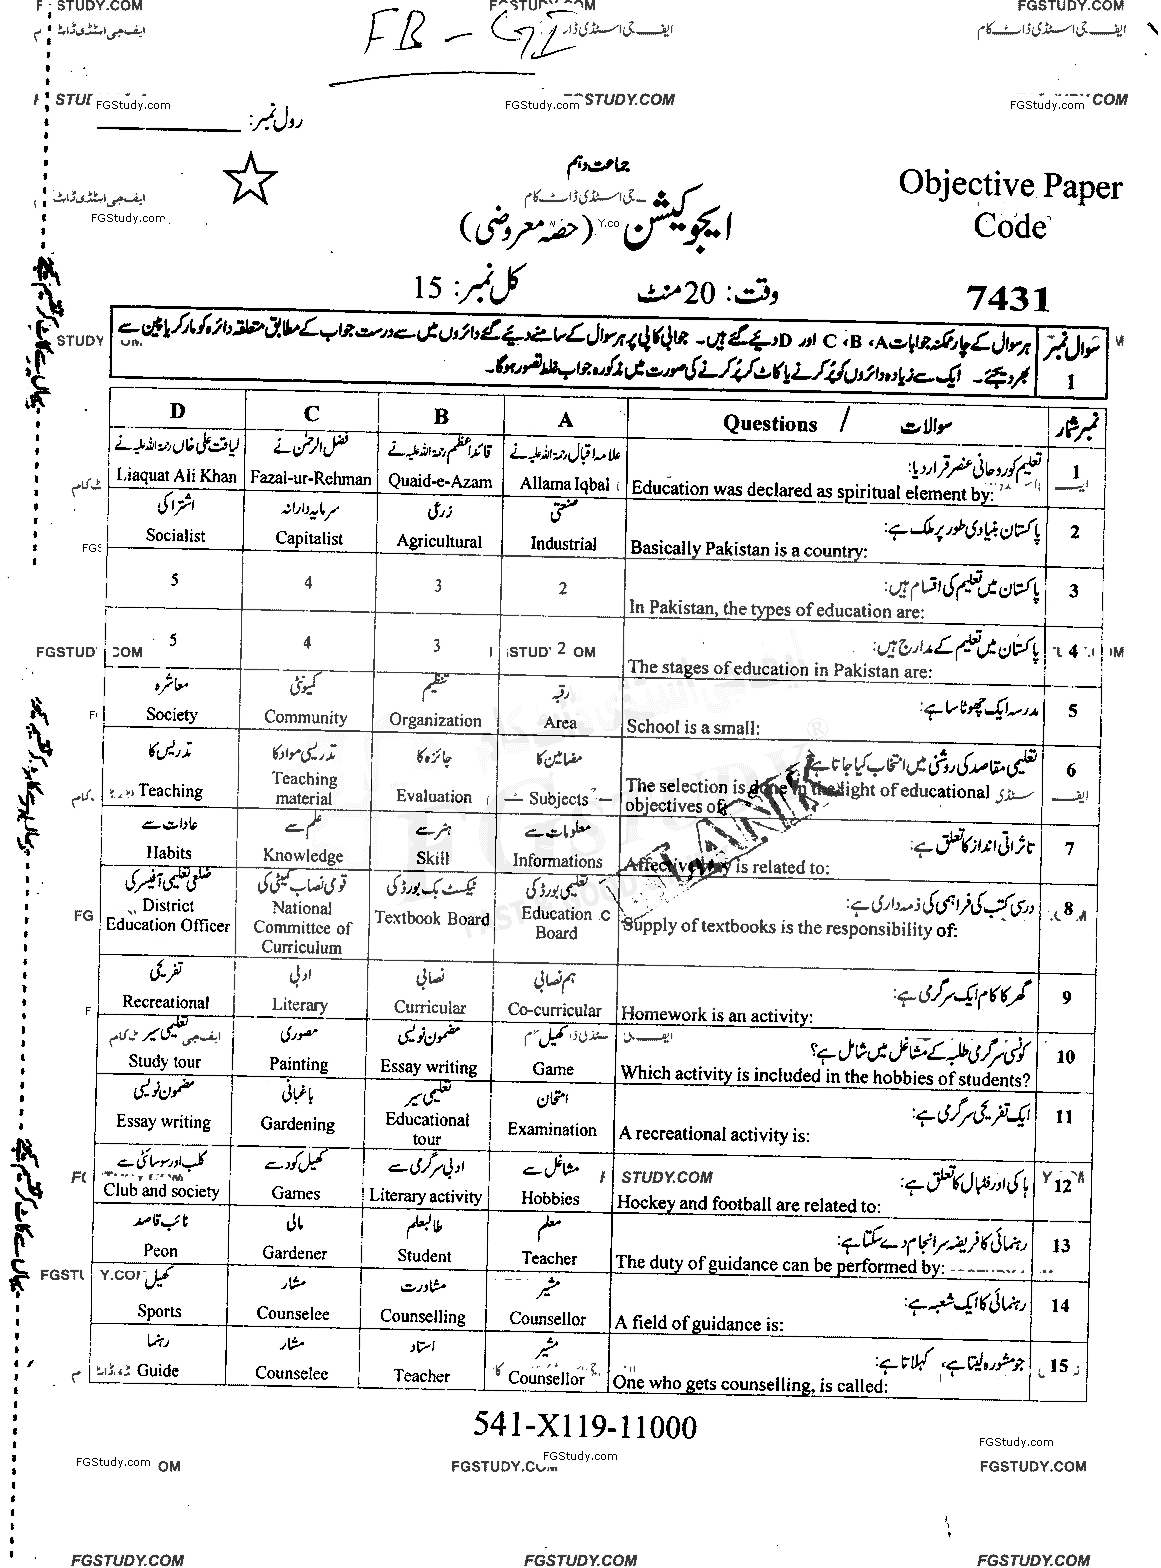 FB - GI
رول نمبر:
جماعت دہم
Objective Paper
ایجوکیشن (حصّہ معروضی)
Code
وقت: 20 منٹ
کل نمبر: 15
7431
سوال نمبر 1
ہر سوال کے چار ممکنہ جوابات A، B، C اور D دیئے گئے ہیں۔ جوابی کاپی پر ہر سوال کے سامنے دیئے گئے دائروں میں سے درست جواب کے مطابق متعلقہ دائرہ کو مارکر یا پین سے
بھر دیجئے۔ ایک سے زیادہ دائروں کو پُر کرنے یا کاٹ کر پُر کرنے کی صورت میں مذکورہ جواب غلط تصور ہوگا۔
D C B A Questions / سوالات نمبر شمار
لیاقت علی خاں رحمۃ اللہ علیہ نے فضل الرحمٰن نے قائد اعظم رحمۃ اللہ علیہ نے علامہ اقبال رحمۃ اللہ علیہ نے تعلیم کو روحانی عنصر قرار دیا: 1
Liaquat Ali Khan Fazal-ur-Rehman Quaid-e-Azam Allama Iqbal Education was declared as spiritual element by:
اشتراکی سرمایہ دارانہ زرعی صنعتی پاکستان بنیادی طور پر ملک ہے: 2
Socialist Capitalist Agricultural Industrial Basically Pakistan is a country:
5 4 3 2 پاکستان میں تعلیم کی اقسام ہیں: 3
In Pakistan, the types of education are:
5 4 3 2 پاکستان میں تعلیم کے مدارج ہیں: 4
The stages of education in Pakistan are:
معاشرہ کمیونٹی تنظیم رقبہ مدرسہ ایک چھوٹا سا ہے: 5
Society Community Organization Area School is a small:
تدریس کا تدریسی مواد کا جائزہ کا مضامین کا تعلیمی مقاصد کی روشنی میں انتخاب کیا جاتا ہے: 6
Teaching Teaching material Evaluation Subjects The selection is done in the light of educational objectives of:
عادات سے علم سے ہنر سے معلومات سے تاثراتی انداز کا تعلق ہے: 7
Habits Knowledge Skill Informations Affective way is related to:
ضلعی تعلیمی آفیسر کی قومی نصاب کمیٹی کی ٹیکسٹ بک بورڈ کی تعلیمی بورڈ کی درسی کتب کی فراہمی کی ذمہ داری ہے: 8
District Education Officer National Committee of Curriculum Textbook Board Education Board Supply of textbooks is the responsibility of:
تفریحی ادبی نصابی ہم نصابی گھر کا کام ایک سرگرمی ہے: 9
Recreational Literary Curricular Co-curricular Homework is an activity:
تعلیمی سیر مصوری مضمون نویسی کھیل کونسی سرگرمی طلبہ کے مشاغل میں شامل ہے؟ 10
Study tour Painting Essay writing Game Which activity is included in the hobbies of students?
مضمون نویسی باغبانی تعلیمی سیر امتحان ایک تفریحی سرگرمی ہے: 11
Essay writing Gardening Educational tour Examination A recreational activity is:
کلب اور سوسائٹی سے کھیل کود سے ادبی سرگرمی سے مشاغل سے ہاکی اور فٹبال کا تعلق ہے: 12
Club and society Games Literary activity Hobbies Hockey and football are related to:
نائب قاصد مالی طالبعلم معلم رہنمائی کا فریضہ سرانجام دے سکتا ہے: 13
Peon Gardener Student Teacher The duty of guidance can be performed by:
کھیل مشار مشاورت مشیر رہنمائی کا ایک شعبہ ہے: 14
Sports Counselee Counselling Counsellor A field of guidance is:
رہنما مشار استاد مشیر جو مشورہ لیتا ہے، کہلاتا ہے: 15
Guide Counselee Teacher Counsellor One who gets counselling, is called:
541-X119-11000
FGStudy.com FGStudy.com FGStudy.com
FGSTUDY.COM FGSTUDY.COM FGSTUDY.COM